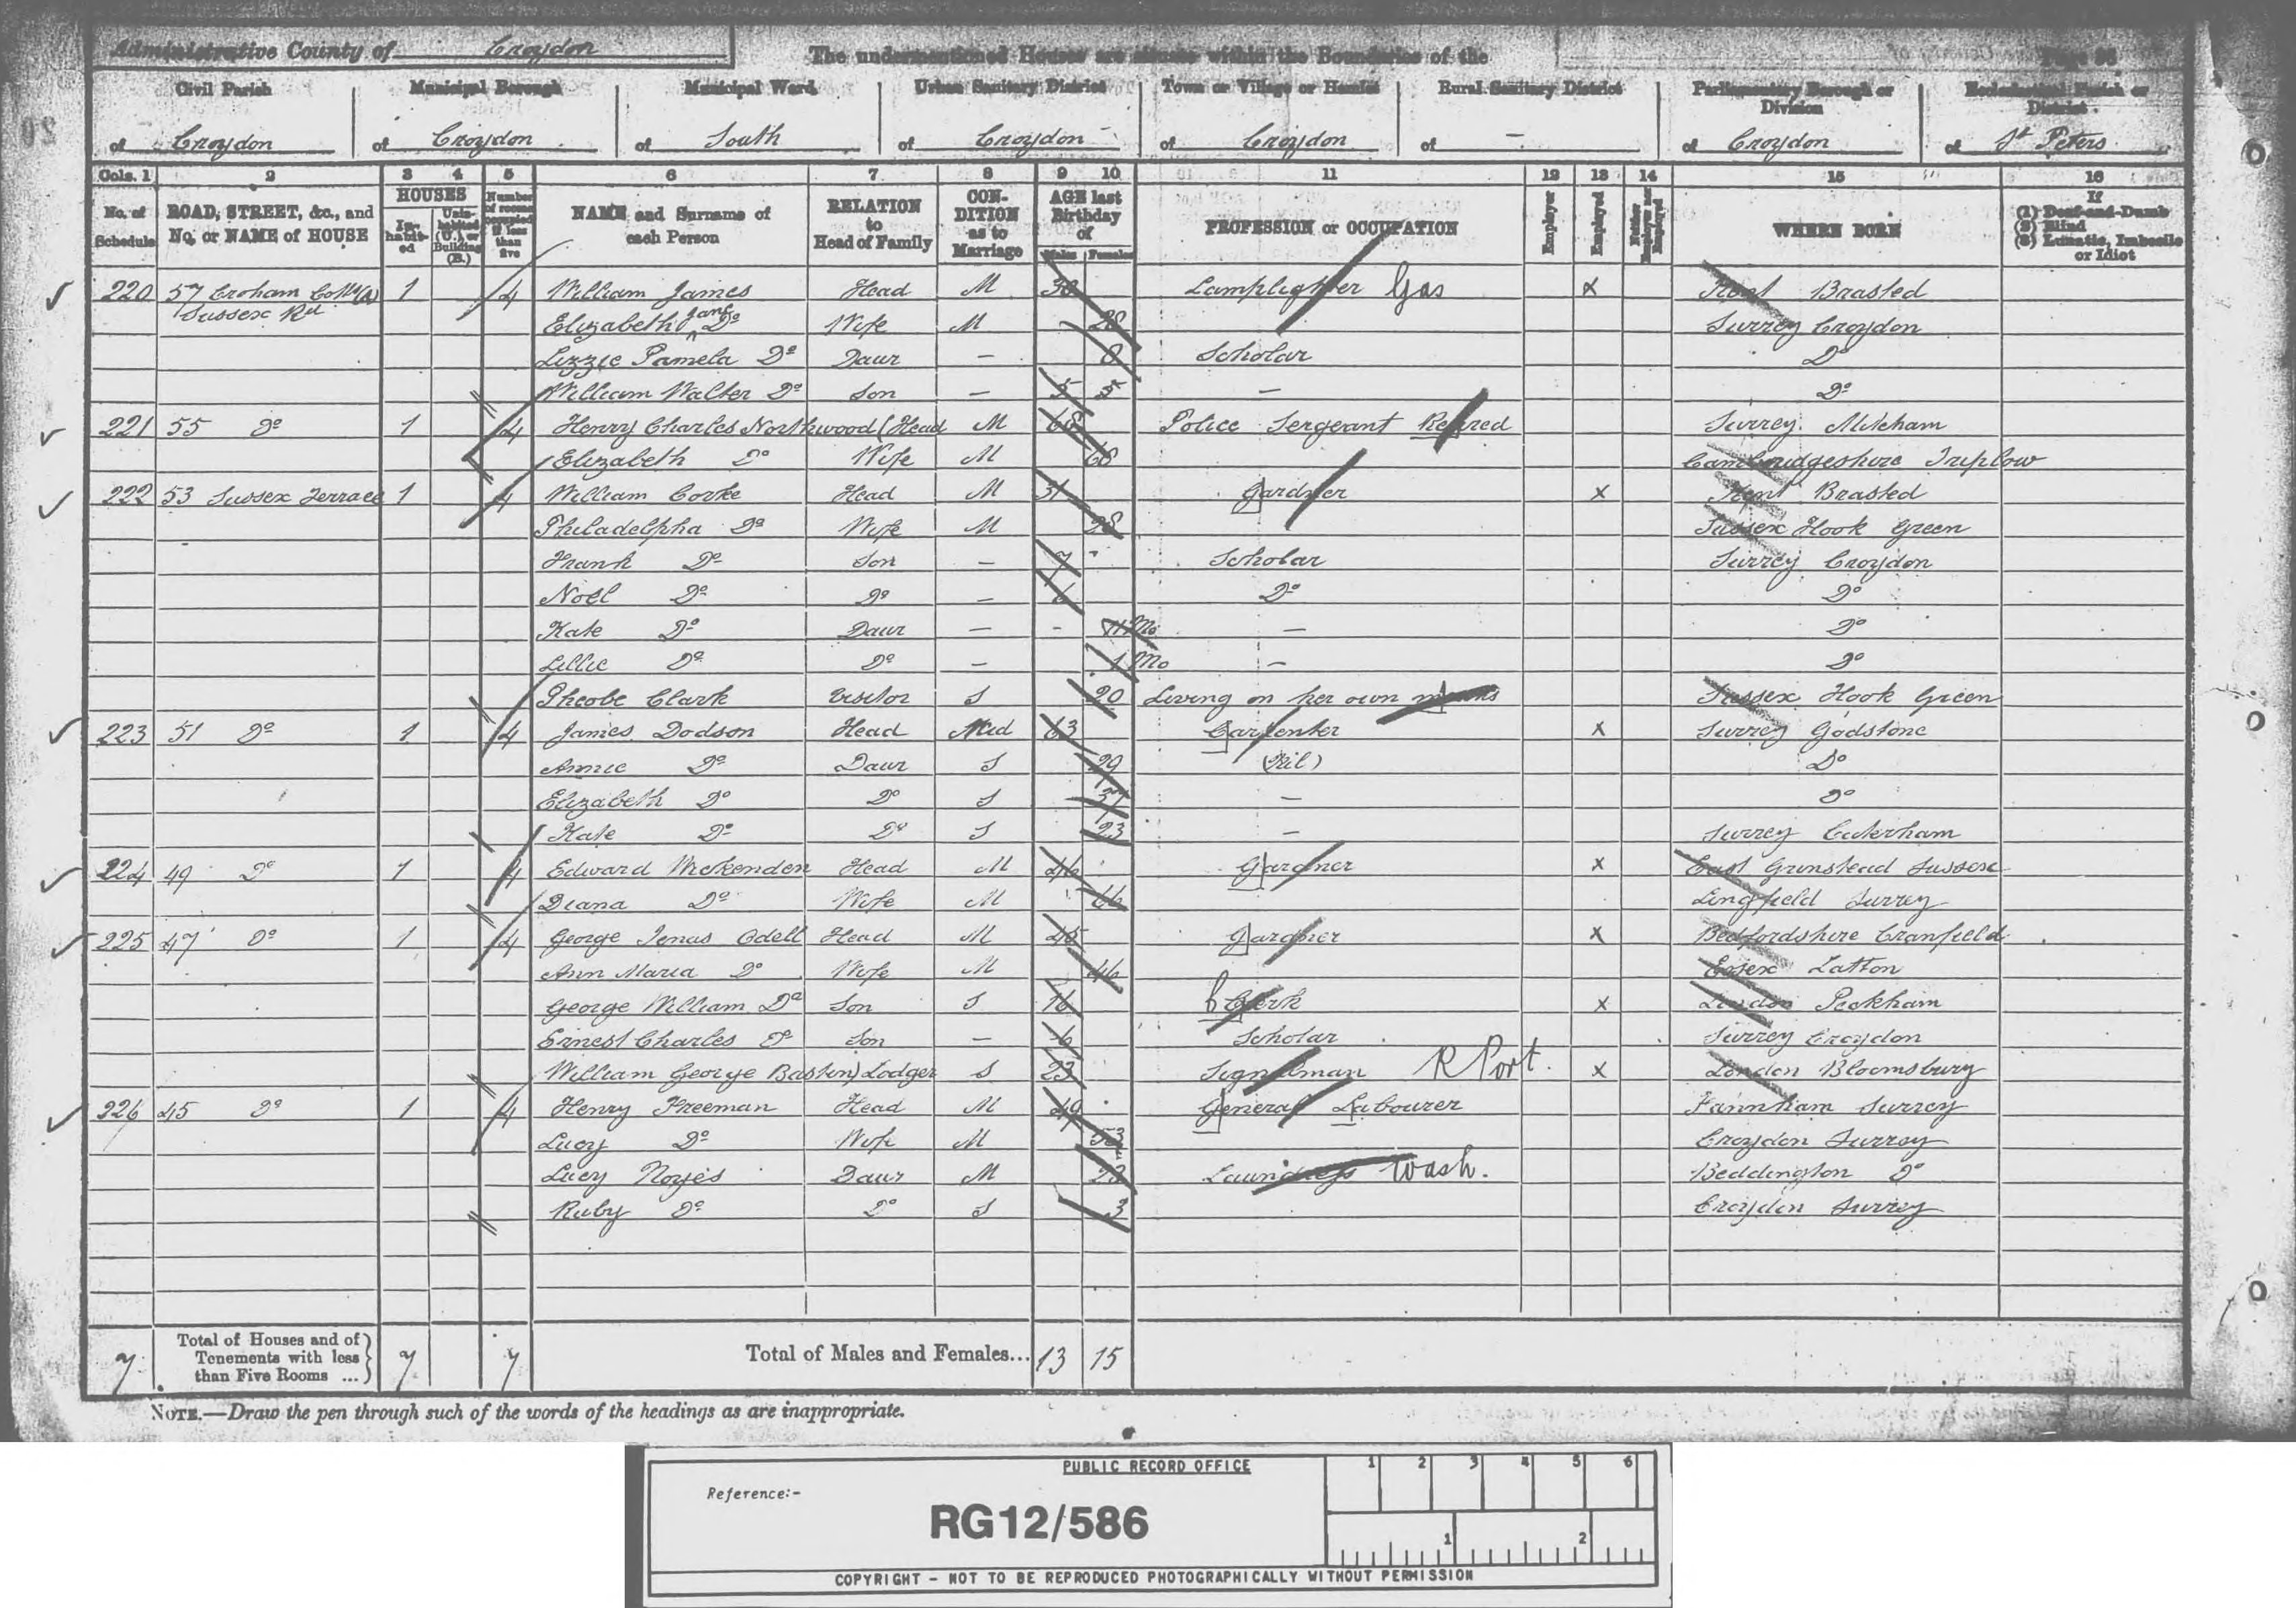 Administrative County of Croydon The undermentioned Houses are situate within the Boundaries of the
Civil Parish Municipal Borough Municipal Ward Urban Sanitary District Town or Village or Hamlet Rural Sanitary District Parliamentary Borough or Division Ecclesiastical Parish or District
of Croydon of Croydon of South of Croydon of Croydon of - of Croydon of St Peters
Cols. 1 2 3 4 5 6 7 8 9 10 11 12 13 14 15 16
No. of Schedule ROAD, STREET, &c., and No. or NAME of HOUSE HOUSES Inhabited Uninhabited (U.), or Building (B.) Number of rooms occupied if less than five NAME and Surname of each Person RELATION to Head of Family CONDITION as to Marriage AGE last Birthday of Males Females PROFESSION or OCCUPATION Employer Employed Neither Employer nor Employed WHERE BORN If (1) Deaf-and-Dumb (2) Blind (3) Lunatic, Imbecile or Idiot
220 57 Croham Cottg(s) 1 4 William James Head M Lamplighter Gas x Kent Brasted
Sussex Rd Elizabeth Jane Do Wife M 28 Surrey Croydon
Lizzie Pamela Do Daur — Scholar Do
William Walter Do Son — 5 — Do
221 55 Do 1 4 Henry Charles Northwood (Head M 68 Police Sergeant Retired Surrey Mitcham
Elizabeth Do Wife M 68 Cambridgeshire Triplow
222 53 Sussex Terrace 1 4 William Cooke Head M 31 Gardner x Kent Brasted
Philadelpha Do Wife M 28 Sussex Hook Green
Frank Do Son — 7 Scholar Surrey Croydon
Noel Do Do — 6 Do Do
Kate Do Daur — - Mo — Do
Lillie Do Do — 1 Mo — Do
Pheobe Clark Visitor S 20 Living on her own means Sussex Hook Green
223 51 Do 1 4 James Dodson Head Wid 63 Carpenter x Surrey Godstone
Annie Do Daur S 29 (Nil) Do
Elizabeth Do Do S — Do
Kate Do Do S 23 — Surrey Caterham
224 49 Do 1 4 Edward Wickenden Head M 46 Gardner x East Grinstead Sussex
Diana Do Wife M Lingfield Surrey
225 47 Do 1 4 George Jonas Odell Head M 45 Gardner x Bedfordshire Cranfield
Ann Maria Do Wife M 46 Essex Latton
George William Do Son S 16 Clerk x London Peckham
Ernest Charles Do Son — 6 Scholar Surrey Croydon
William George Baskin) Lodger S 23 Signalman R Port. x London Bloomsbury
226 45 Do 1 4 Henry Freeman Head M 49 General Labourer Farnham Surrey
Lucy Do Wife M 53 Croydon Surrey
Lucy Noyes Daur M 23 Laundress Wash. Beddington Do
Ruby Do Do S 3 Croydon Surrey
7 Total of Houses and of Tenements with less than Five Rooms ... 7 7 Total of Males and Females... 13 15
NOTE.—Draw the pen through such of the words of the headings as are inappropriate.
PUBLIC RECORD OFFICE 1 2 3 4 5 6
Reference:-
RG12/586
1 2
COPYRIGHT - NOT TO BE REPRODUCED PHOTOGRAPHICALLY WITHOUT PERMISSION